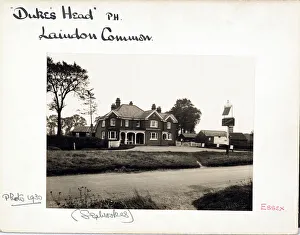 "Duke's Head" PH.
Laindon Common.
Photo 1930
Essex